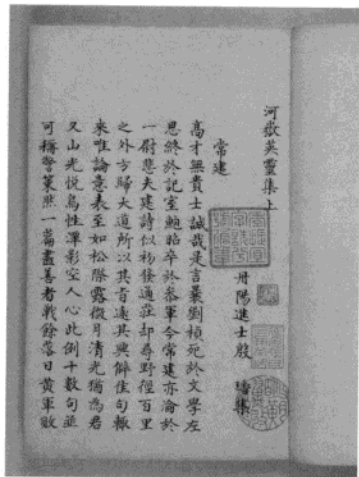 河嶽英靈集上
丹陽進士殷璠集
常建
高才無貴士誠哉是言曩劉楨死於文學左
思終於記室鮑昭卒於參軍今常建亦淪於
一尉悲夫建詩似初發通莊却尋野徑百里
之外方歸大道所以其旨遠其興僻佳句輒
來唯論意表至如松際露微月清光猶為君
又山光悦鳥性潭影空人心此例十數句並
可稱警策然一篇盡善者戰餘落日黃軍敗